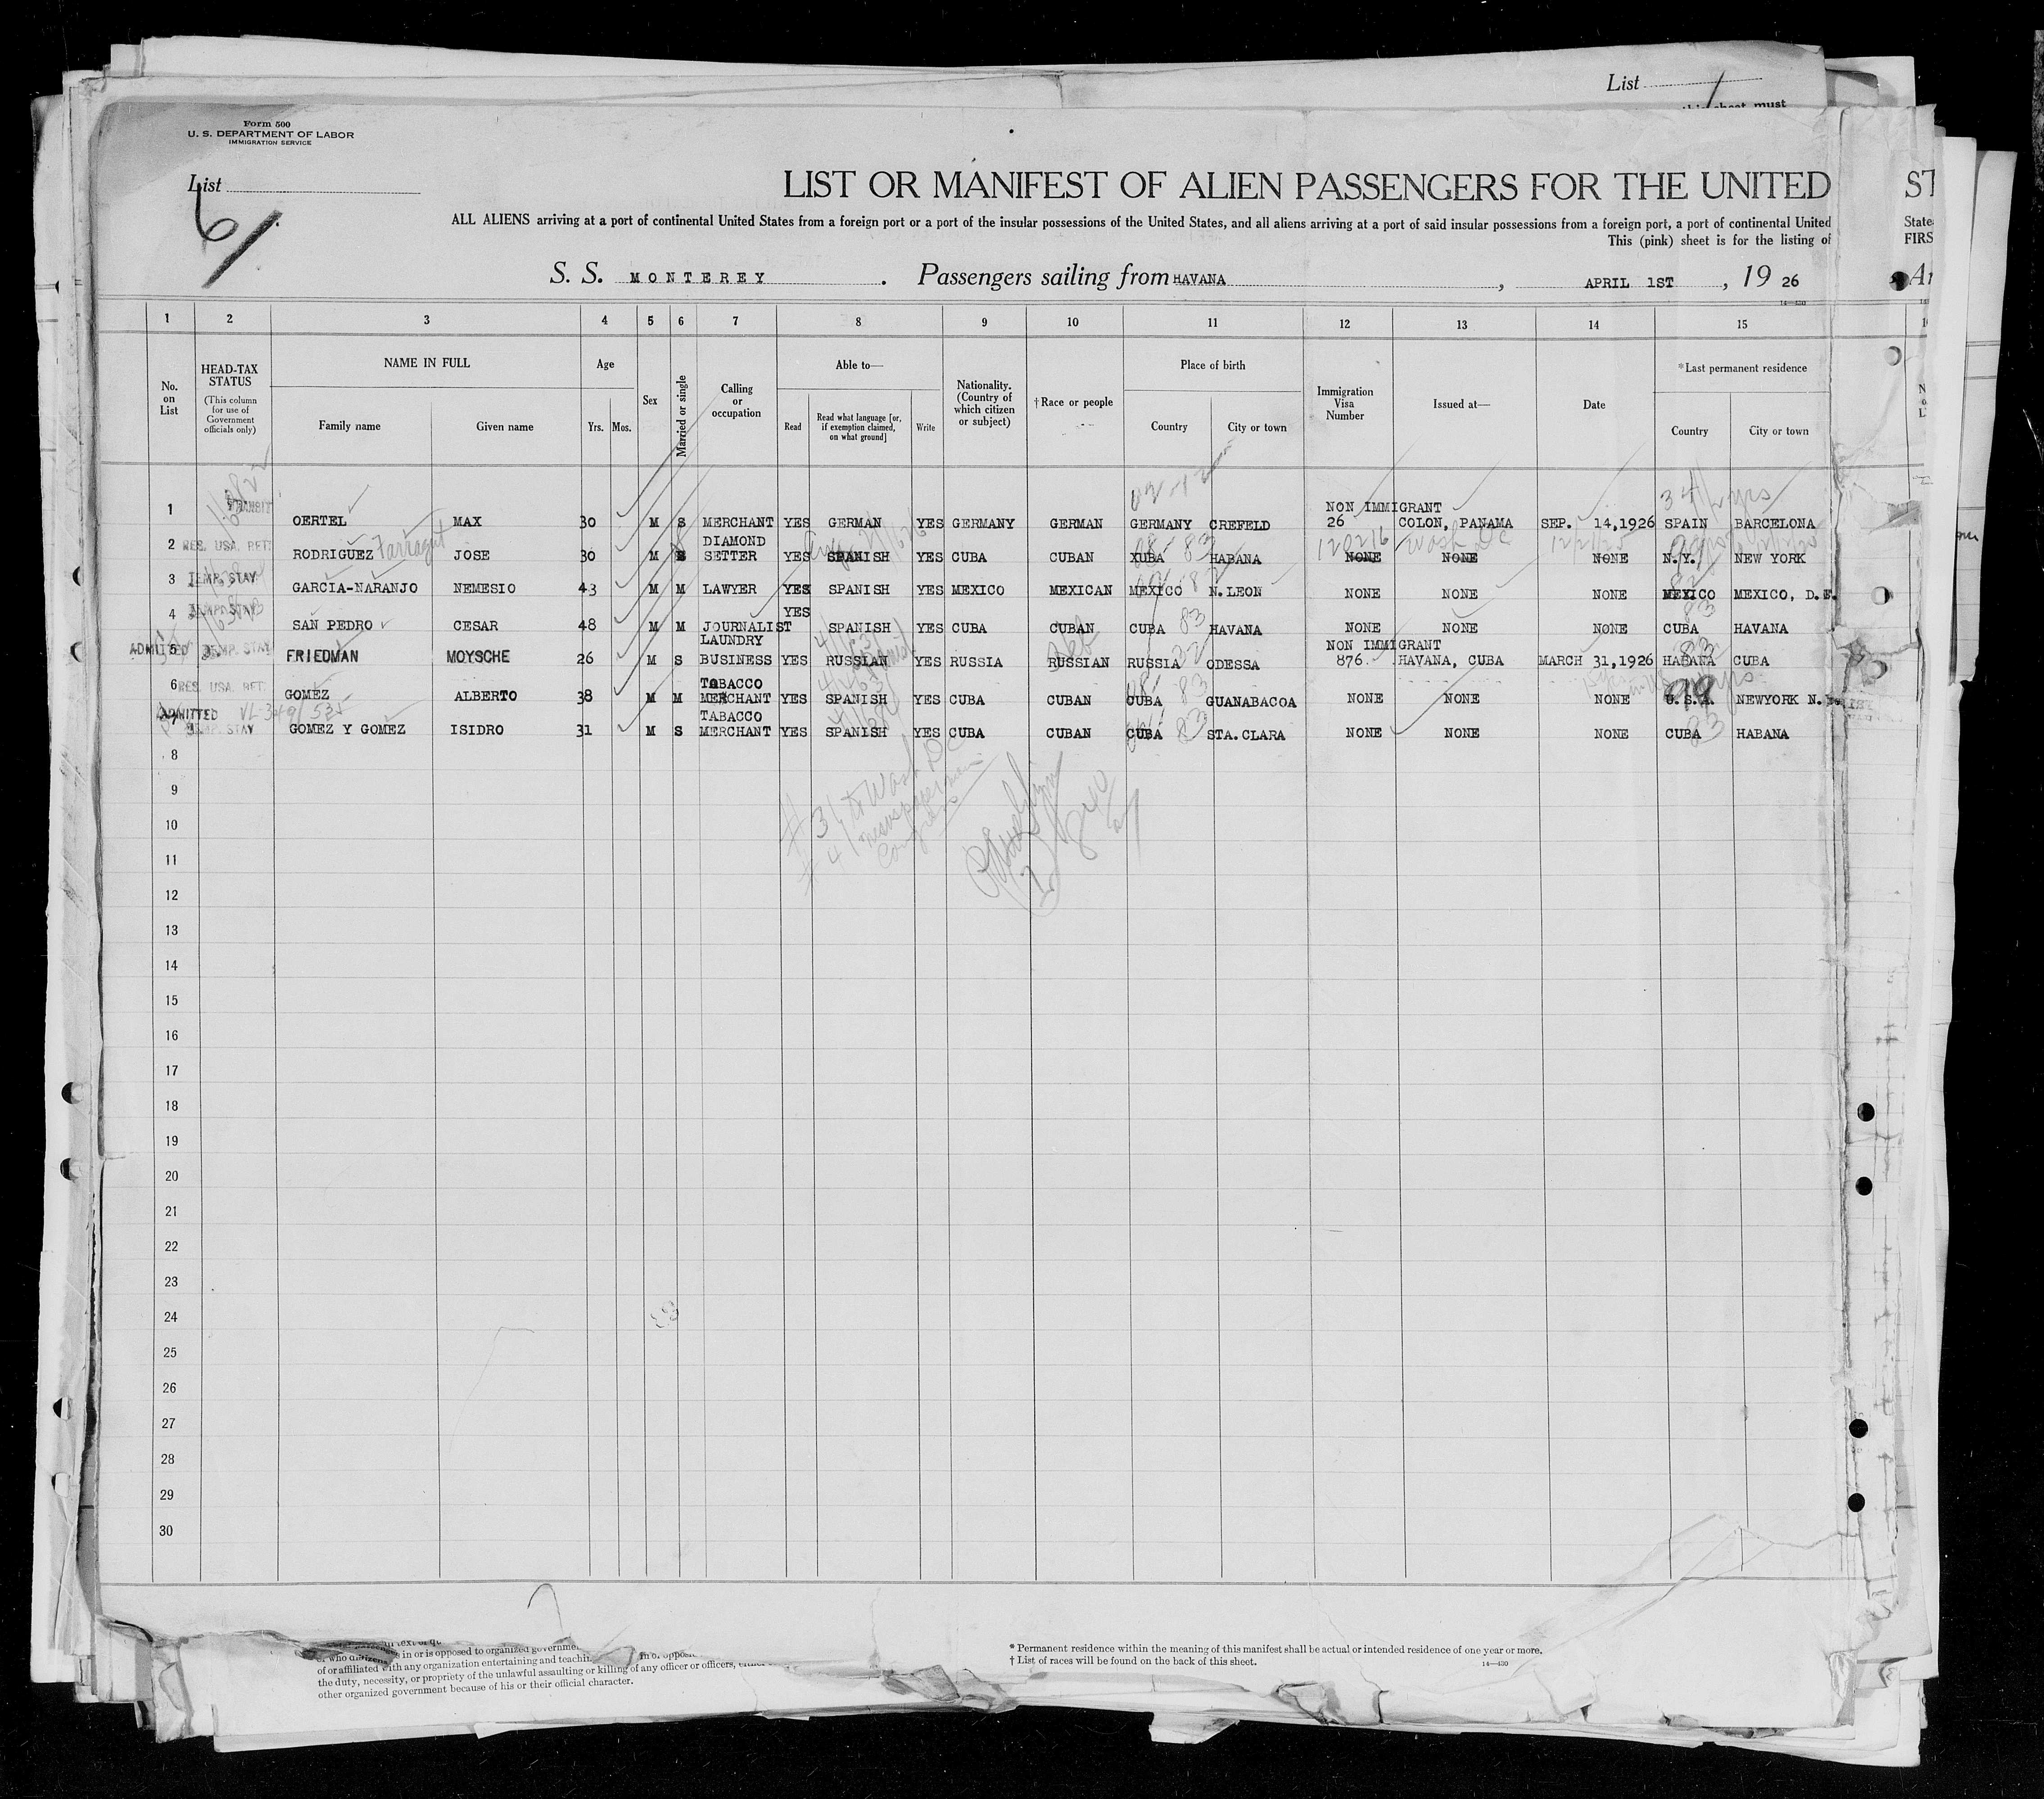 List
this sheet must
Form 500
U. S. DEPARTMENT OF LABOR
IMMIGRATION SERVICE
List
61
LIST OR MANIFEST OF ALIEN PASSENGERS FOR THE UNITED
ST
ALL ALIENS arriving at a port of continental United States from a foreign port or a port of the insular possessions of the United States, and all aliens arriving at a port of said insular possessions from a foreign port, a port of continental United
State
This (pink) sheet is for the listing of
FIRS
S. S. MONTEREY. Passengers sailing from HAVANA, APRIL 1ST, 19 26
14—430
1 2 3 4 5 6 7 8 9 10 11 12 13 14 15
No. on List
HEAD-TAX STATUS
(This column for use of Government officials only)
NAME IN FULL
Family name Given name
Age
Yrs. Mos.
Sex
Married or single
Calling or occupation
Able to—
Read
Read what language [or, if exemption claimed, on what ground]
Write
Nationality. (Country of which citizen or subject)
† Race or people
Place of birth
Country City or town
Immigration Visa Number
Issued at—
Date
* Last permanent residence
Country City or town
NON IMMIGRANT
1 TRANSIT OERTEL MAX 30 M S MERCHANT YES GERMAN YES GERMANY GERMAN GERMANY CREFELD 26 COLON, PANAMA SEP. 14,1926 SPAIN BARCELONA
DIAMOND
2 RES. USA. RET. RODRIGUEZ Farragut JOSE 30 M S SETTER YES SPANISH YES CUBA CUBAN XUBA HABANA NONE NONE NONE N.Y. NEW YORK
120216 Wash DC
3 TEMP. STAY GARCIA-NARANJO NEMESIO 43 M M LAWYER YES SPANISH YES MEXICO MEXICAN MEXICO N.LEON NONE NONE NONE MEXICO MEXICO, D.F.
YES
4 TEMP. STAY SAN PEDRO CESAR 48 M M JOURNALIST SPANISH YES CUBA CUBAN CUBA 83 HAVANA NONE NONE NONE CUBA HAVANA
LAUNDRY NON IMMIGRANT
ADMITTED 5 TEMP. STAY FRIEDMAN MOYSCHE 26 M S BUSINESS YES RUSSIAN YES RUSSIA RUSSIAN RUSSIA ODESSA 876. HAVANA, CUBA MARCH 31,1926 HABANA CUBA
TOBACCO
6 RES. USA. RET. GOMEZ ALBERTO 38 M M MERCHANT YES SPANISH YES CUBA CUBAN CUBA 83 GUANABACOA NONE NONE NONE U.S.A. NEWYORK N.
TABACCO
ADMITTED 7 TEMP. STAY GOMEZ Y GOMEZ ISIDRO 31 M S MERCHANT YES SPANISH YES CUBA CUBAN CUBA 83 STA.CLARA NONE NONE NONE CUBA HABANA
8
# 3 to Wash DC
9
# 4 newspapermen
10
Congress
11
12
13
14
15
16
17
18
19
20
21
22
23
24
25
26
27
28
29
30
in or is opposed to organized governme
of or affiliated with any organization entertaining and teachin
the duty, necessity, or propriety of the unlawful assaulting or killing of any officer or officers,
other organized government because of his or their official character.
* Permanent residence within the meaning of this manifest shall be actual or intended residence of one year or more.
† List of races will be found on the back of this sheet.
14—430